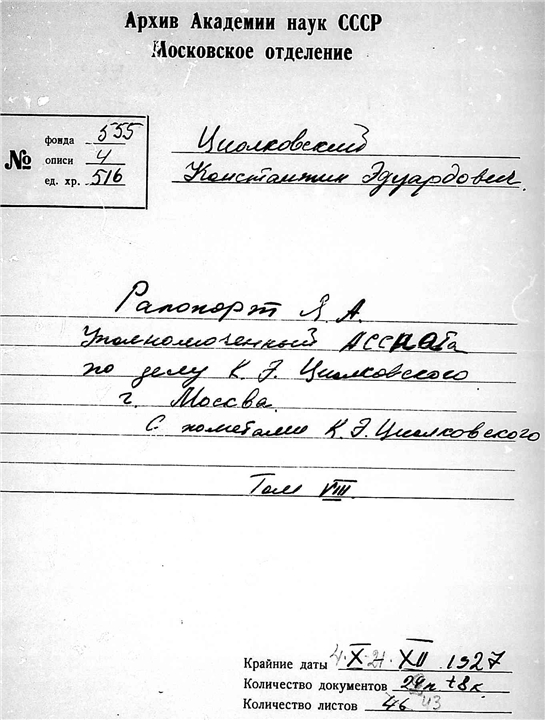 Архив Академии наук СССР
Московское отделение
№
фонда 555
описи 4
ед. хр. 516
Циолковский
Константин Эдуардович.
Рапопорт Я. А.
Уполномоченный АССНАТа
по делу К. Э. Циолковского
г. Москва.
С пометами К. Э. Циолковского
Том VIII
Крайние даты 4.X-21.XII.1927
Количество документов 29п +8к.
Количество листов 46 43